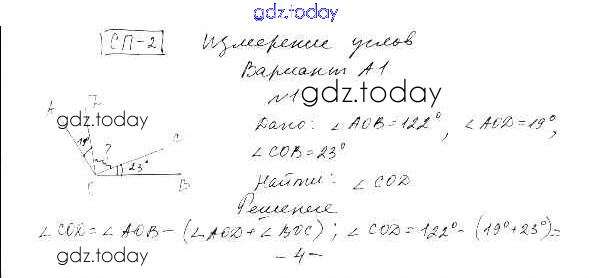 gdz.today
СП-2 Измерение углов
Вариант А1
№1 gdz.today
Дано: ∠AOB=122°, ∠AOD=19°,
∠COB=23°
Найти: ∠COD
Решение
∠COD=∠AOB-(∠AOD+∠BOC); ∠COD=122°-(19°+23°)=
-4-
gdz.today
gdz.today
A
19°
?
C
23°
B